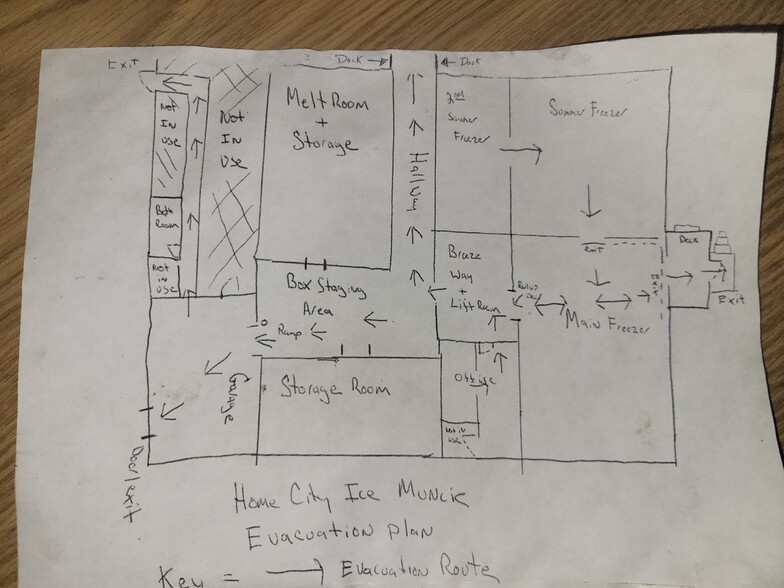 Exit
Dock →
← Dock
Not
In
Use
Not
In
Use
Melt Room
+
Storage
Hallway
2nd
Summer
Freezer
Sommer Freezer
Bath
Room
Not
in
use
Box Staging
Area
Ramp
Breeze
Way
+
Lift Room
Exit
Exit
Deck
Exit
Main Freezer
Garage
Storage Room
Office
Not in
use
Door/exit
Home City Ice Muncie
Evacuation plan
Key = → Evacuation Route